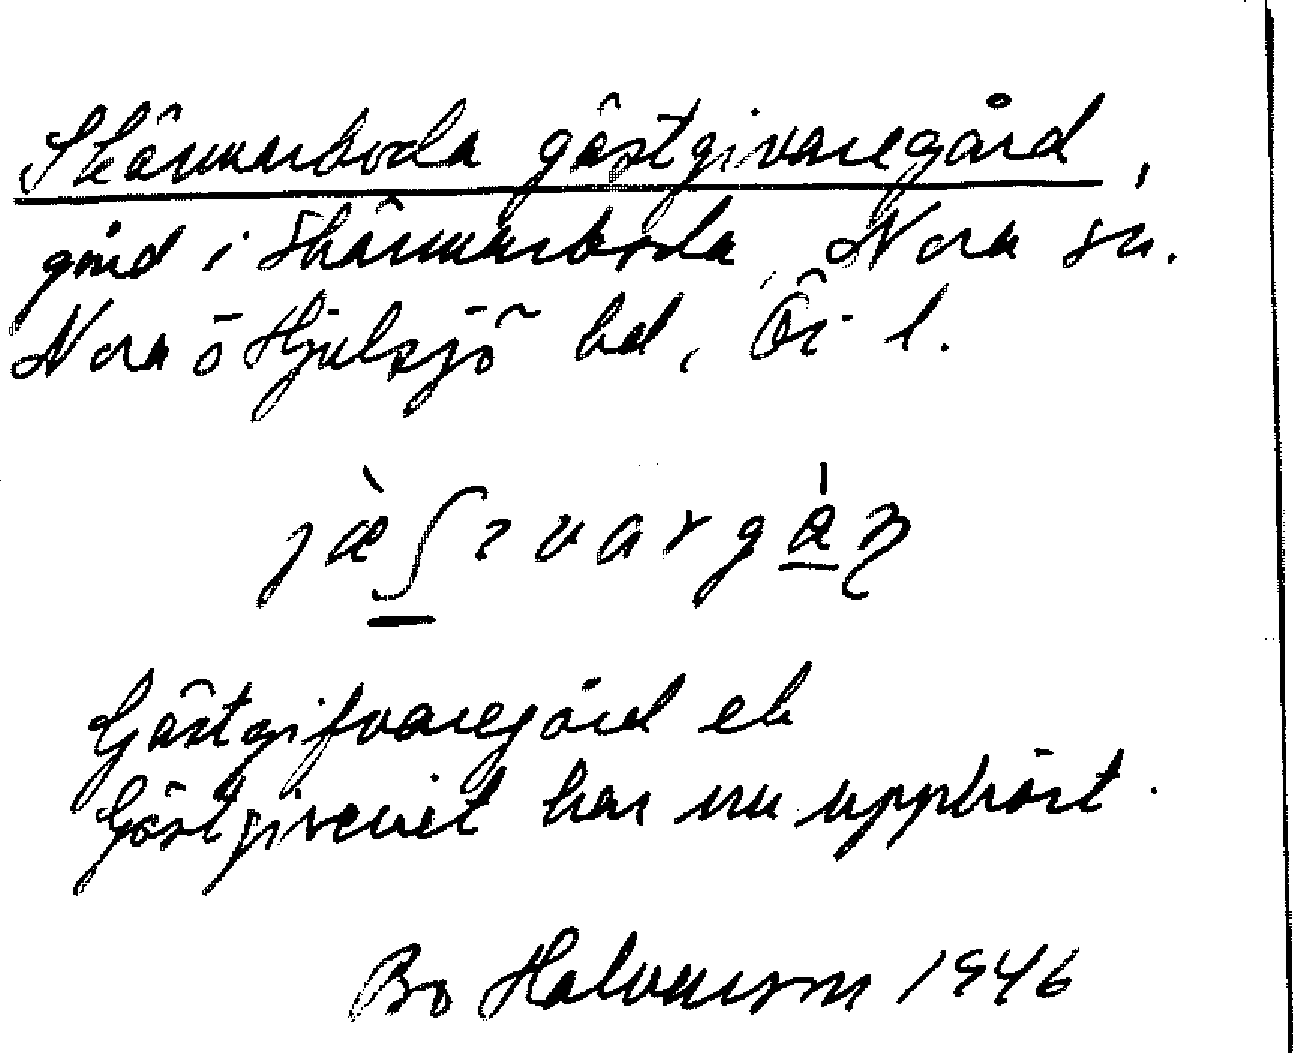 Skärmarboda gästgivaregård,
gård i Skärmarboda, Nora sn.
Nora o Hjulsjö hd, Ör l.
Gästgifvaregård ek
Gästgiveriet har nu upphört.
Bo Halvarson 1946